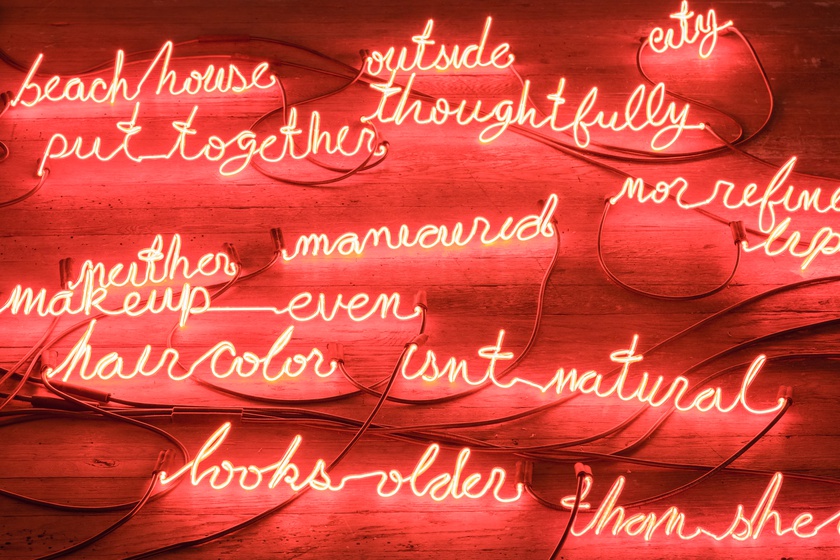 beach house outside city
put together thoughtfully
neither manicured nor refine
makeup even lip
hair color isnt natural
looks older than she